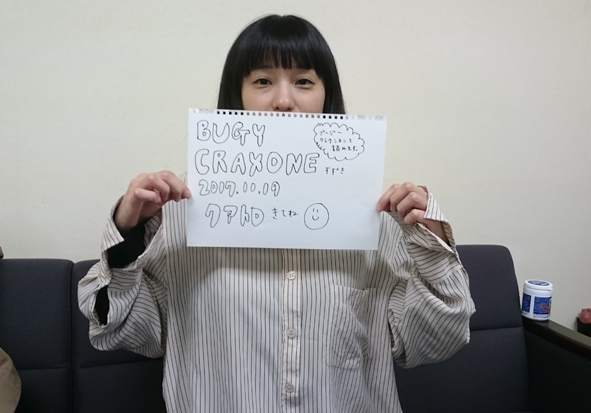 BUGY
CRAXONE すずき
2017.11.19
クアトロ きてね